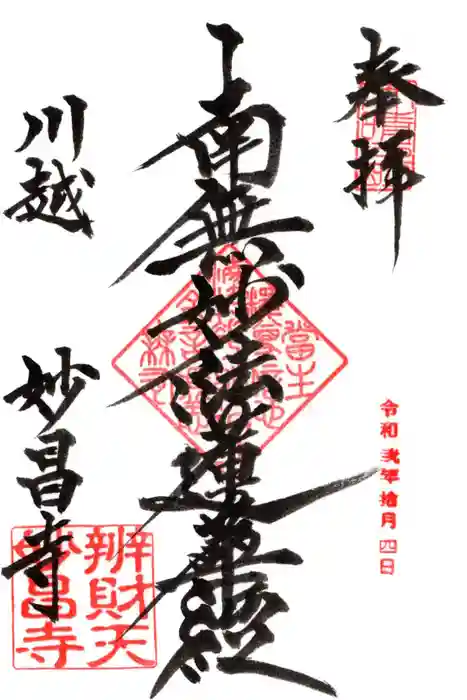 奉拝
令和弐年拾月四日
南無妙法蓮華経
川越
妙昌寺
辨財天
妙昌寺